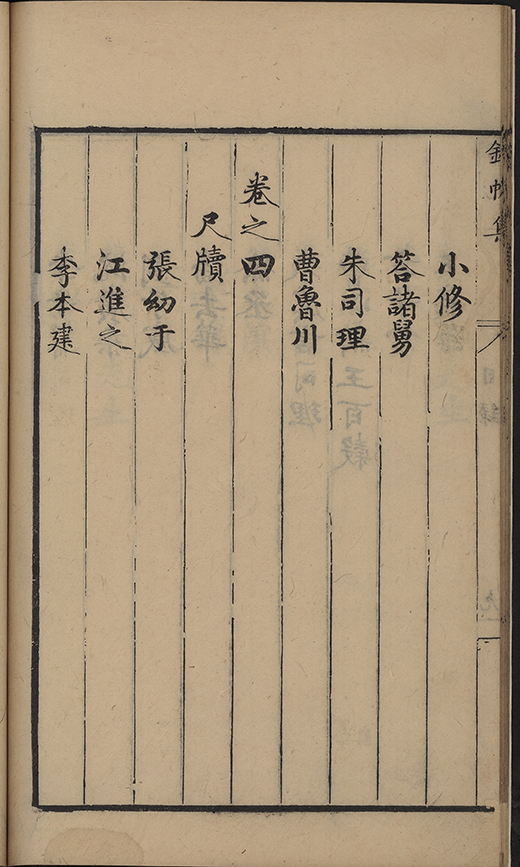 小修
答諸舅
朱司理
曹魯川
卷之四
尺牘
張幼于
江進之
李本建